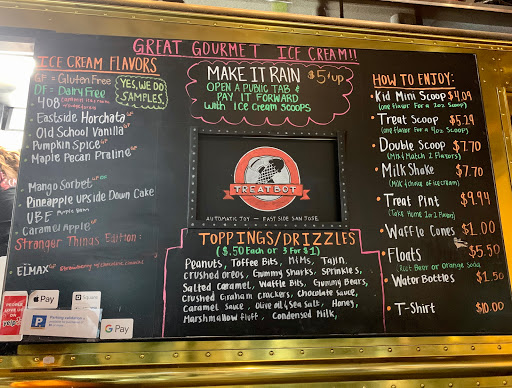 GREAT GOURMET ICE CREAM!!
ICE CREAM FLAVORS
GF = Gluten Free
DF = Dairy Free
YES, WE DO
SAMPLES.
408
Eastside Horchata GF
Old School Vanilla GF
Pumpkin Spice GF
Maple Pecan Praline GF
Mango Sorbet GF DF
Pineapple Upside Down Cake
UBE Purple Yam
Caramel Apple GF
Stranger Things Edition:
ELMAX GF Strawberry
MAKE IT RAIN $5+up
OPEN A PUBLIC TAB &
PAY IT FORWARD
with ICE Cream SCOOPS
TREATBOT
AUTOMATIC TOY — EAST SIDE SAN JOSE
TOPPINGS/DRIZZLES
($.50 Each or 3 For $1)
Peanuts, Toffee Bits, M&Ms, Tajin,
Crushed Oreos, Gummy Sharks, Sprinkles,
Salted Caramel, Waffle Bits, Gummy Bears,
Crushed Graham Crackers, Chocolate Sauce,
Caramel Sauce, Olive oil & Sea Salt, Honey,
Marshmallow Fluff, Condensed Milk,
HOW TO ENJOY:
• Kid Mini Scoop $4.09
(one flavor For a 2oz Scoop)
• Treat Scoop $5.29
(one flavor For a 4oz Scoop)
• Double Scoop $7.70
(Mix & Match 2 Flavors)
• Milk Shake $7.70
(Milk & choice of ice cream)
• Treat Pint $9.94
(Take Home 1 or 2 Flavors)
• Waffle Cones $1.00
• Floats $5.50
(Root Beer or Orange Soda)
• Water Bottles $1.50
• T-Shirt $10.00
PEOPLE
LOVE US
ON
yelp
Apple Pay
Square
P
G Pay